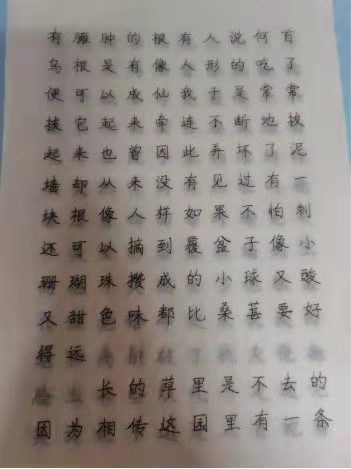 有臃肿的根有人说何首
乌根是有像人形的吃了
便可以成仙我于是常常
拔它起来牵连不断地拔
起来也曾因此弄坏了泥
墙却从未没有见过有一
块根像人样如果不怕刺
还可以摘到覆盆子像小
珊瑚珠攒成的小球又酸
又甜色味都比桑葚要好
得远
长的草里是不去的
因为相传这园里有一条